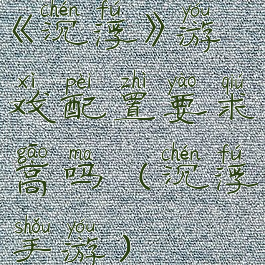 chén fú yóu
《沉浮》游
xì pèi zhì yāo qiú
戏配置要求
gāo ma chén fú
高吗（沉浮
shǒu yóu
手游）